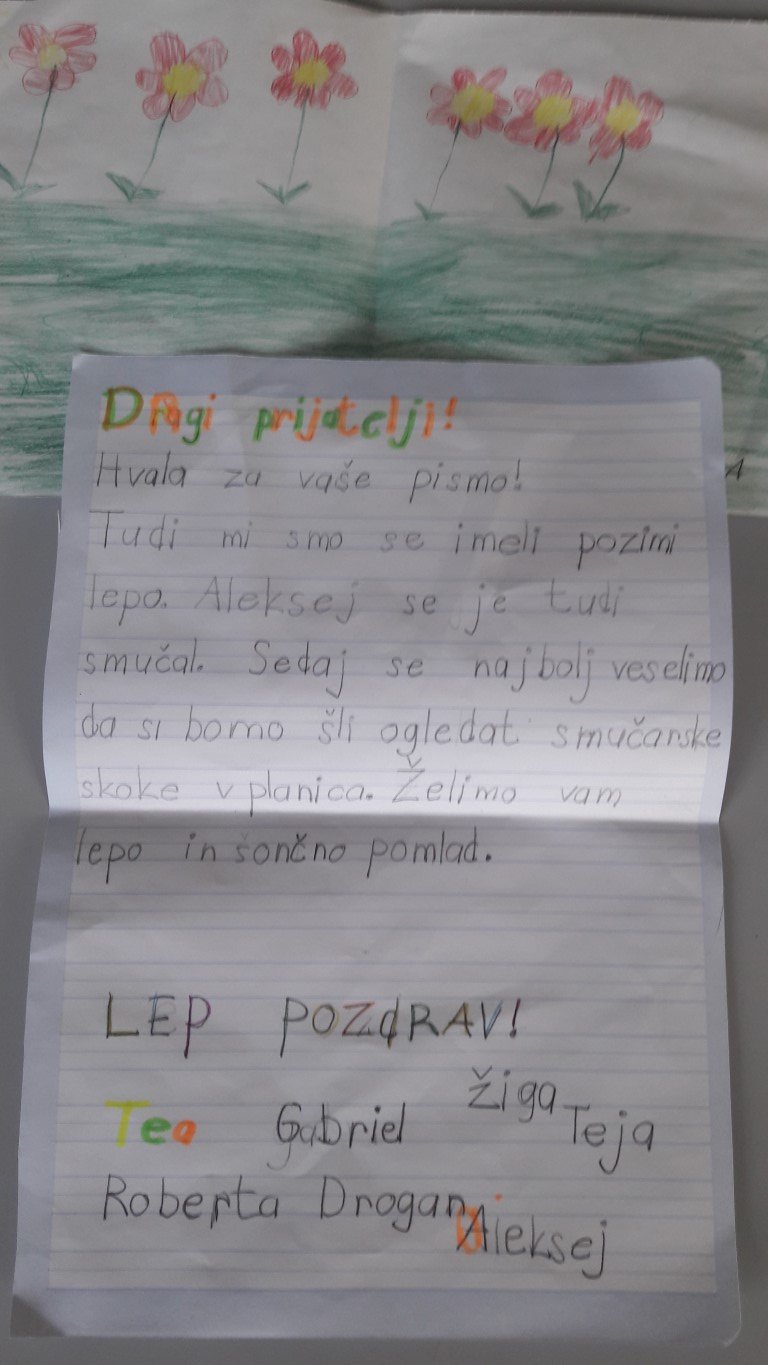 Dragi prijatelji!
Hvala za vaše pismo!
Tudi mi smo se imeli pozimi
lepo. Aleksej se je tudi
smučal. Sedaj se najbolj veselimo
da si bomo šli ogledat smučarske
skoke v planica. Želimo vam
lepo in sončno pomlad.
LEP POZdRAV!
Tea Gabriel žiga Teja
Roberta Drogan Aleksej